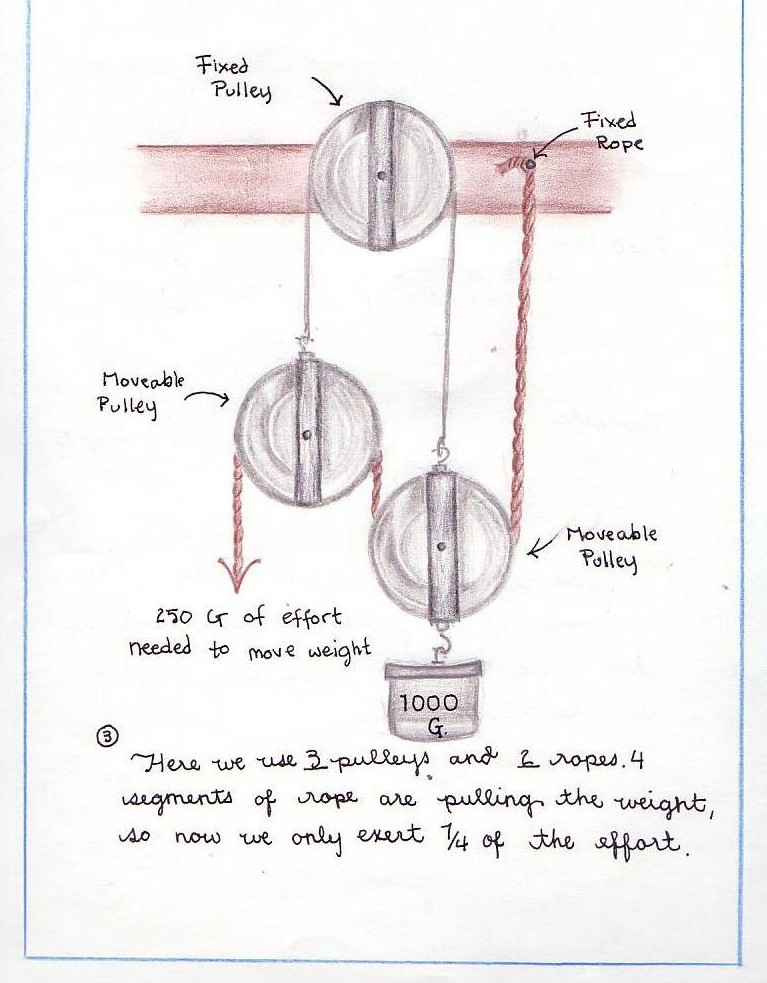 Fixed
Pulley
Fixed
Rope
Moveable
Pulley
Moveable
Pulley
250 G of effort
needed to move weight
1000
G.
③
Here we use 3 pulleys and 2 ropes. 4
segments of rope are pulling the weight,
so now we only exert 1/4 of the effort.